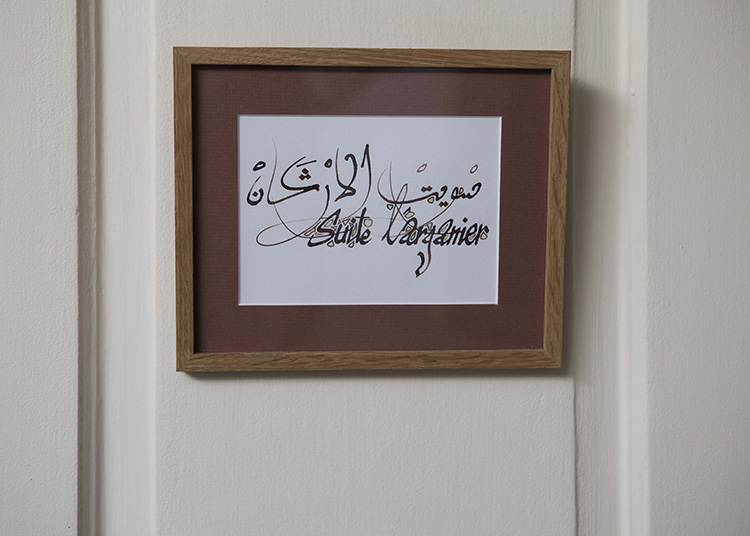 سويت الارݣان
Suite L'arganier